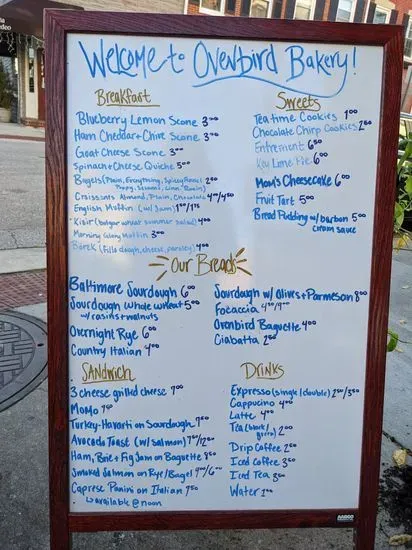 Welcome to Ovenbird Bakery!
Breakfast
Blueberry Lemon Scone 3.00
Ham Cheddar + Chive Scone 3.00
Goat Cheese Scone 3.00
Spinach + Cheese Quiche 5.00
Bagels (Plain, Everything, Spicy Fennel, 2.00
Poppy, Sesame, Cinn. Raisin)
Croissants Almond, Plain, Chocolate 4.00/4.50
English Muffin (w/ Jam) 1.00/1.75
*Kisir (bulgar wheat summer salad) 4.00
Morning Glory Muffin 3.00
Borek (fillo dough, cheese, parsley) 4.00
Sweets
Teatime Cookies 1.00
Chocolate Chirp Cookies 2.50
Entremient 6.50
Key Lime Pie 6.00
Mom's Cheesecake 6.00
Fruit Tart 5.00
Bread Pudding w/ burbon 5.00
cream sauce
Our Breads
Baltimore Sourdough 6.00
Sourdough whole wheat 5.00
w/ rasins + walnuts
Overnight Rye 6.00
Country Italian 4.00
Sourdough w/ Olives + Parmesan 8.00
Focaccia 4.00/9.00
Ovenbird Baguette 4.00
Ciabatta 2.50
Sandwich
3 cheese grilled cheese 7.00
MoMo 7.00
Turkey-Havarti on Sourdough 7.50
Avocado Toast (w/ salmon) 7.00/12.00
Ham, Brie + Fig Jam on Baguette 8.50
Smoked Salmon on Rye/Bagel 9.00/6.00
Caprese Panini on Italian 7.50
↳ available @ noon
Drinks
Expresso (single/double) 2.50/3.50
Cappucino 4.00
Latte 4.00
Tea (black/ 2.00
green)
Drip Coffee 2.50
Iced Coffee 3.50
Iced Tea 3.50
Water 1.00